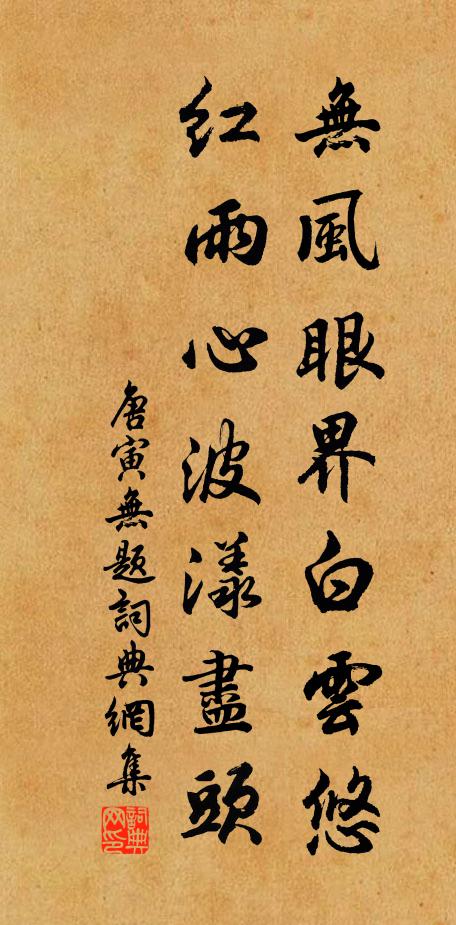 無風眼界白雲悠
紅雨心波漾盡頭
唐寅無題詞典網集
詞典
网印